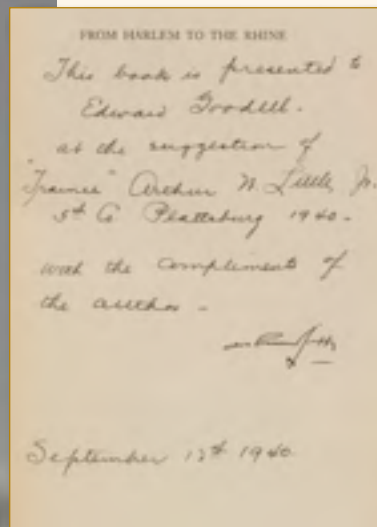 FROM HARLEM TO THE RHINE
This book is presented to
Edward Goodell.
at the suggestion of
"Trainee" Arthur W. Little Jr.
5th Co Plattsburg 1940.
with the compliments of
the author -
September 12th 1940